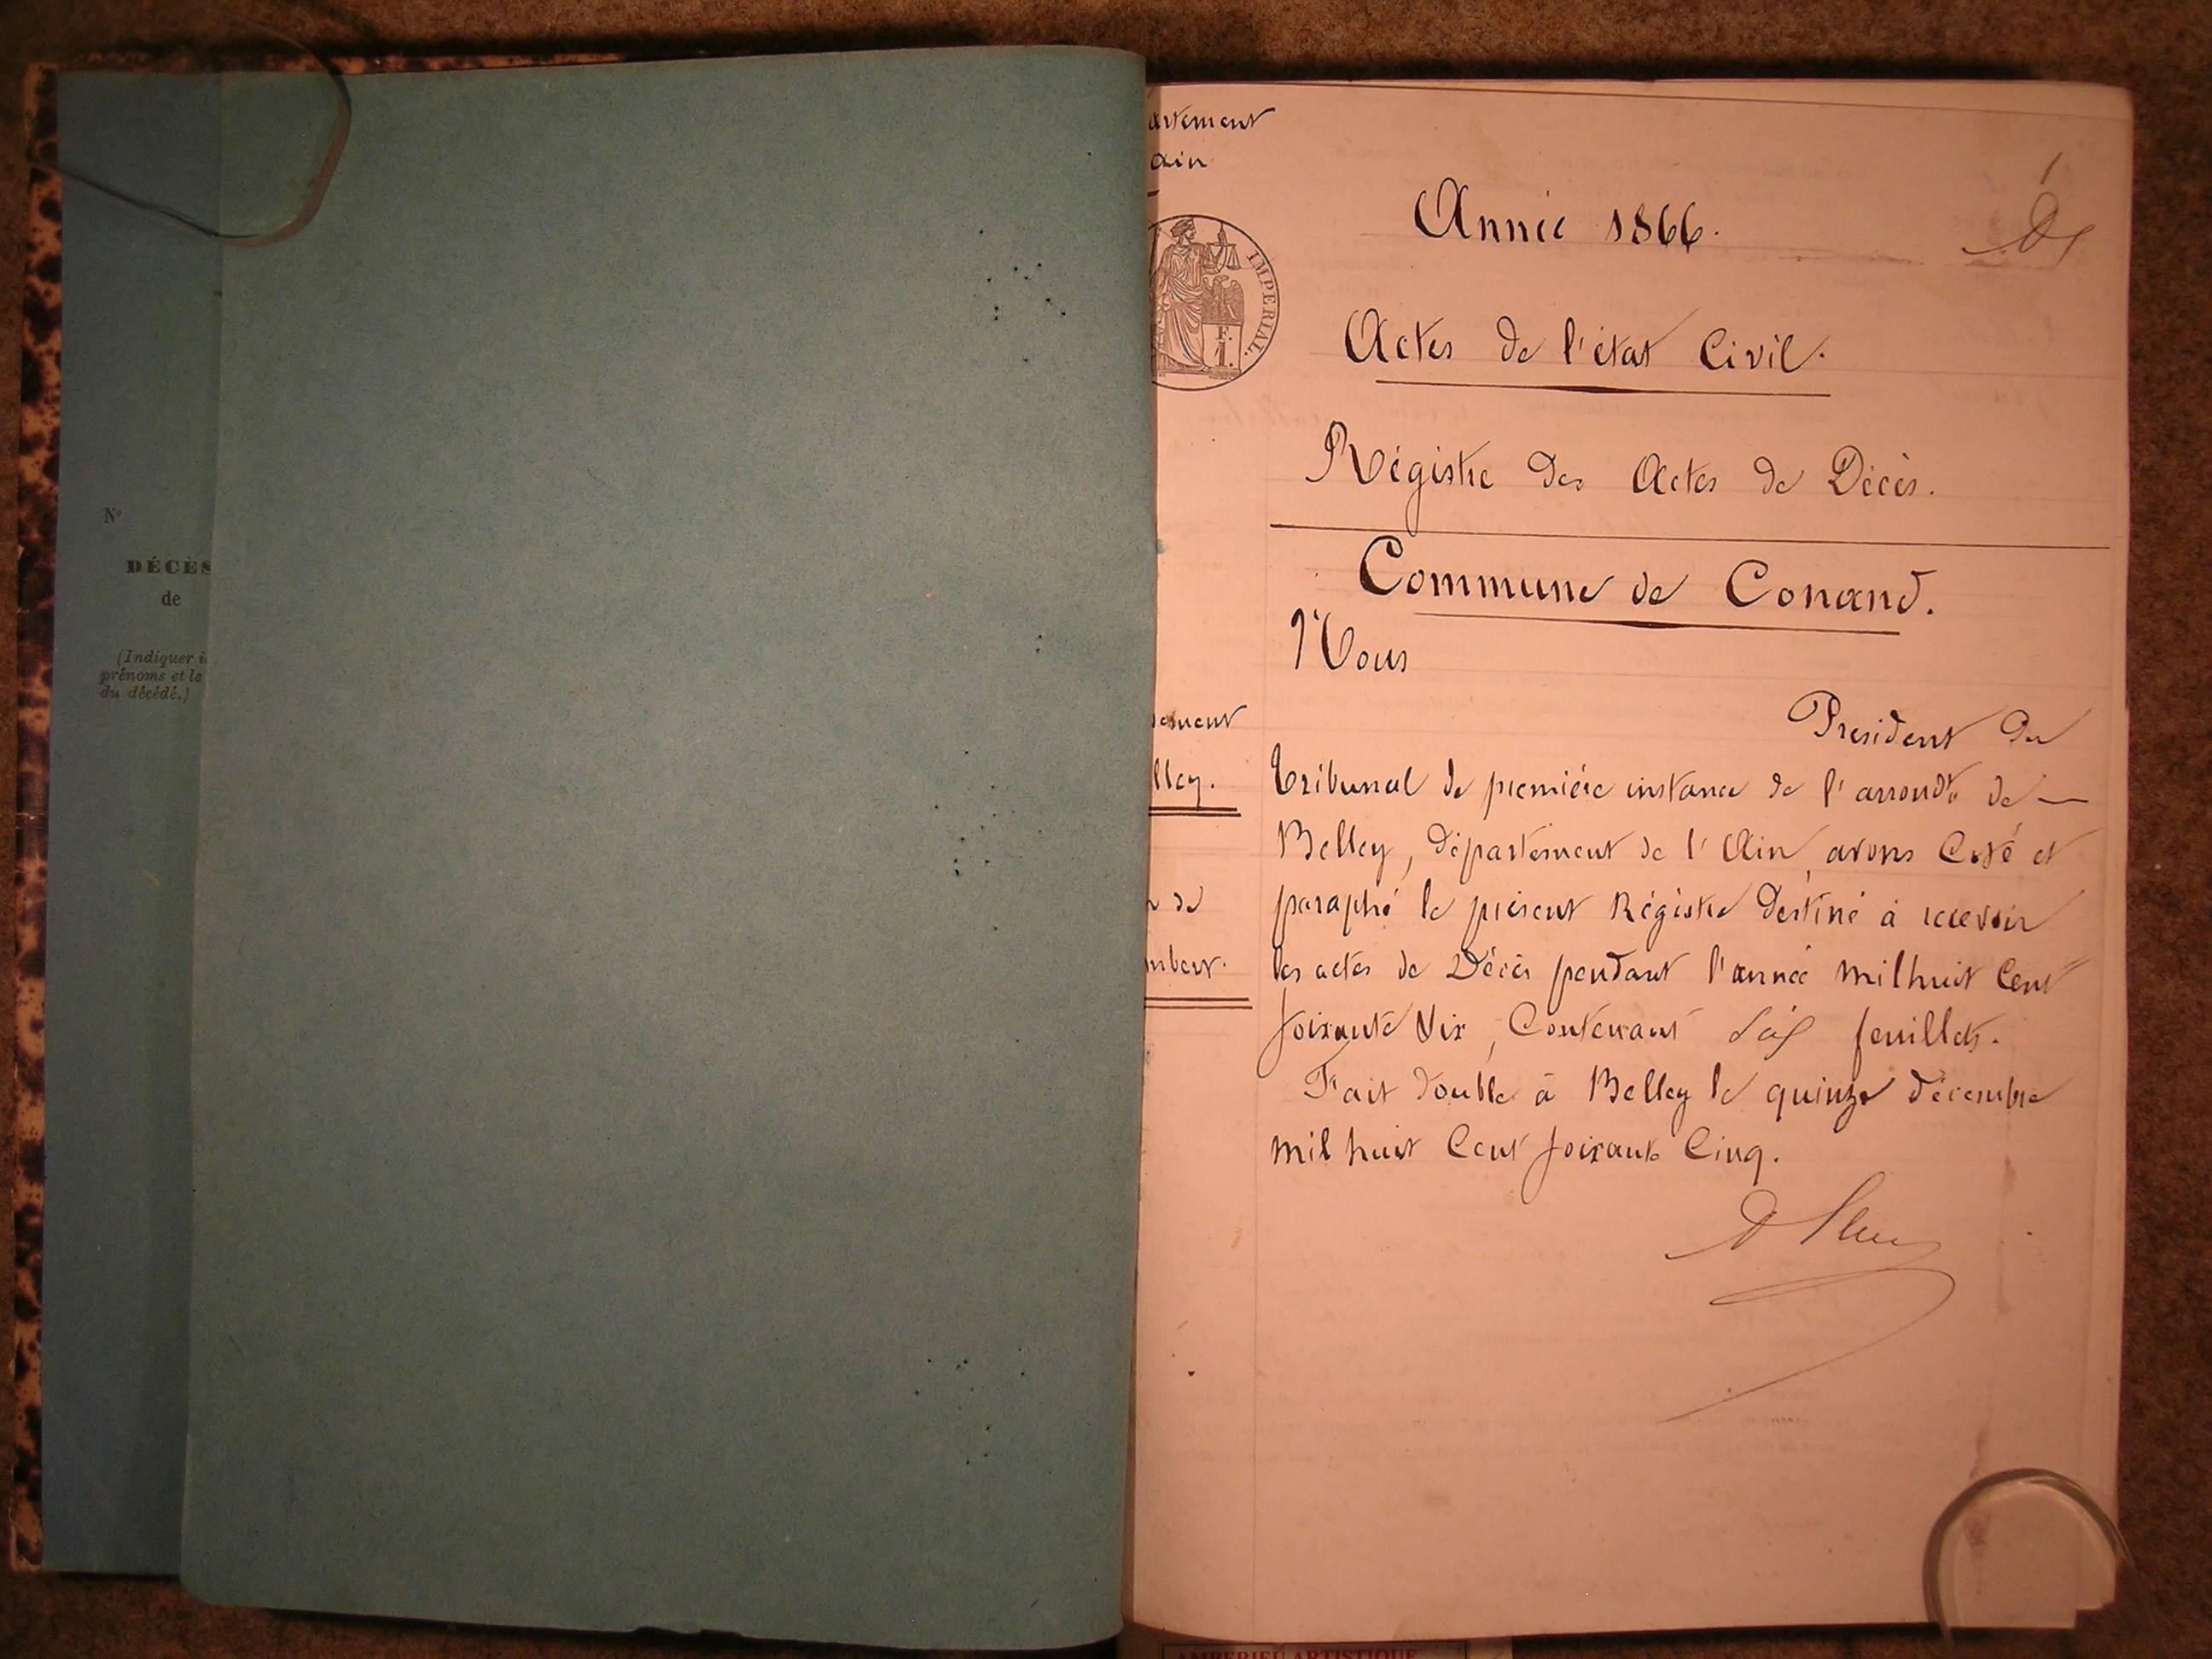 N°
DÉCÈS
de
(Indiquer
prénoms et le
du décédé.)
artement
ain
IMPERIAL.
F.
1.
1
Année 1866.
Actes de l'état Civil.
Régistre des Actes de Décès.
Commune de Conand.
Nous
sement
lley.
de
mbert.
President du
tribunal de première instance de l'arrondt de —
Belley, département de l'Ain, avons Coté et
paraphé le présent Régistre destiné à recevoir
les actes de Décès pendant l'année mil huit Cent
soixante Six, Contenant Six feuillets.
Fait double à Belley le quinze décembre
mil huit Cent soixante Cinq.
AMBERIEU ARTISTIQUE